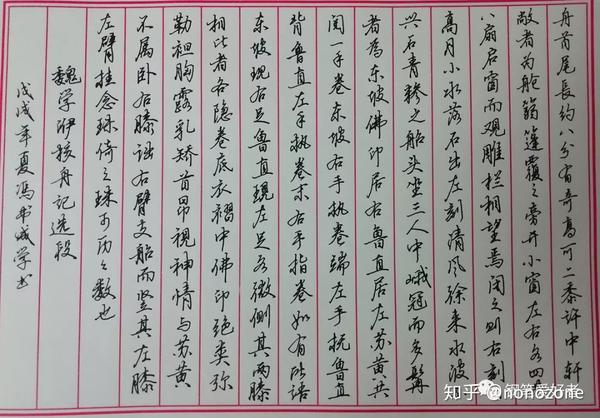 舟首尾長约八分有奇高可二黍许中轩
敞者为舱箬篷覆之旁开小窗左右各四
八扇启窗而观雕栏相望焉闭之则右刻山
高月小水落石出左刻清风徐来水波不
兴石青糁之船头坐三人中峨冠而多髯
者为东坡佛印居右鲁直居左苏黄共
阅一手卷东坡右手执卷端左手抚鲁直
背鲁直左手执卷末右手指卷如有所语
东坡现右足鲁直现左足各微侧其两膝
相比者各隐卷底衣褶中佛印绝类弥
勒袒胸露乳矫首昂视神情与苏黄
不属卧右膝诎右臂支船而竖其左膝
左臂挂念珠倚之珠可历历数也
魏学洢核舟记选段
戊戌年夏冯书城学书
知乎
钢笔爱好者
知乎 @nonozone